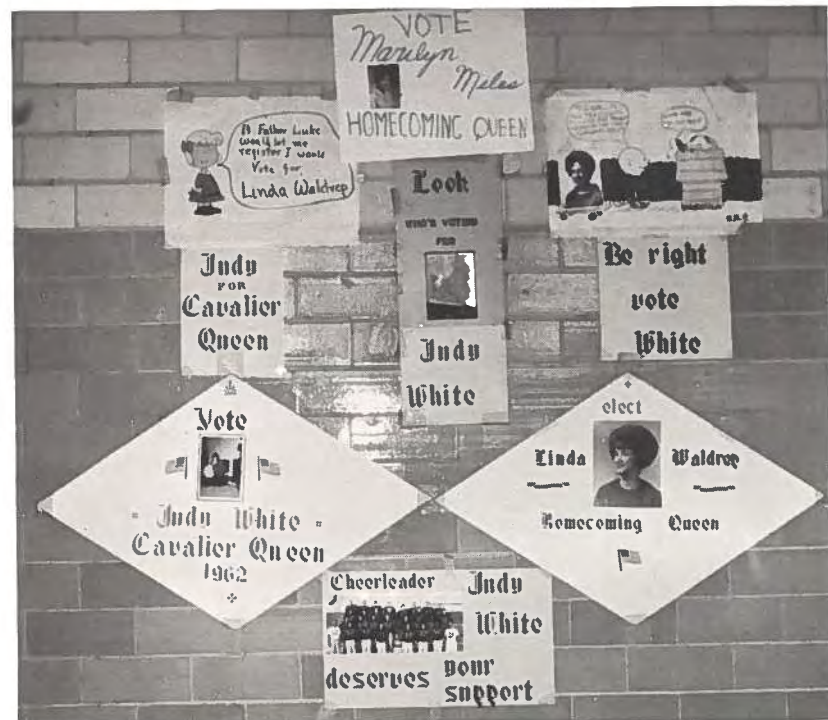 VOTE
Marilyn
Miles
HOMECOMING QUEEN
If Father Luke
would let me
register I would
Vote for
Linda Waldrep
Look
WHO'S VOTING
FOR
Judy
White
Judy
FOR
Cavalier
Queen
Be right
vote
White
Vote
Judy White
Cavalier Queen
1962
elect
Linda Waldrep
Homecoming Queen
Cheerleader Judy
White
deserves your
support